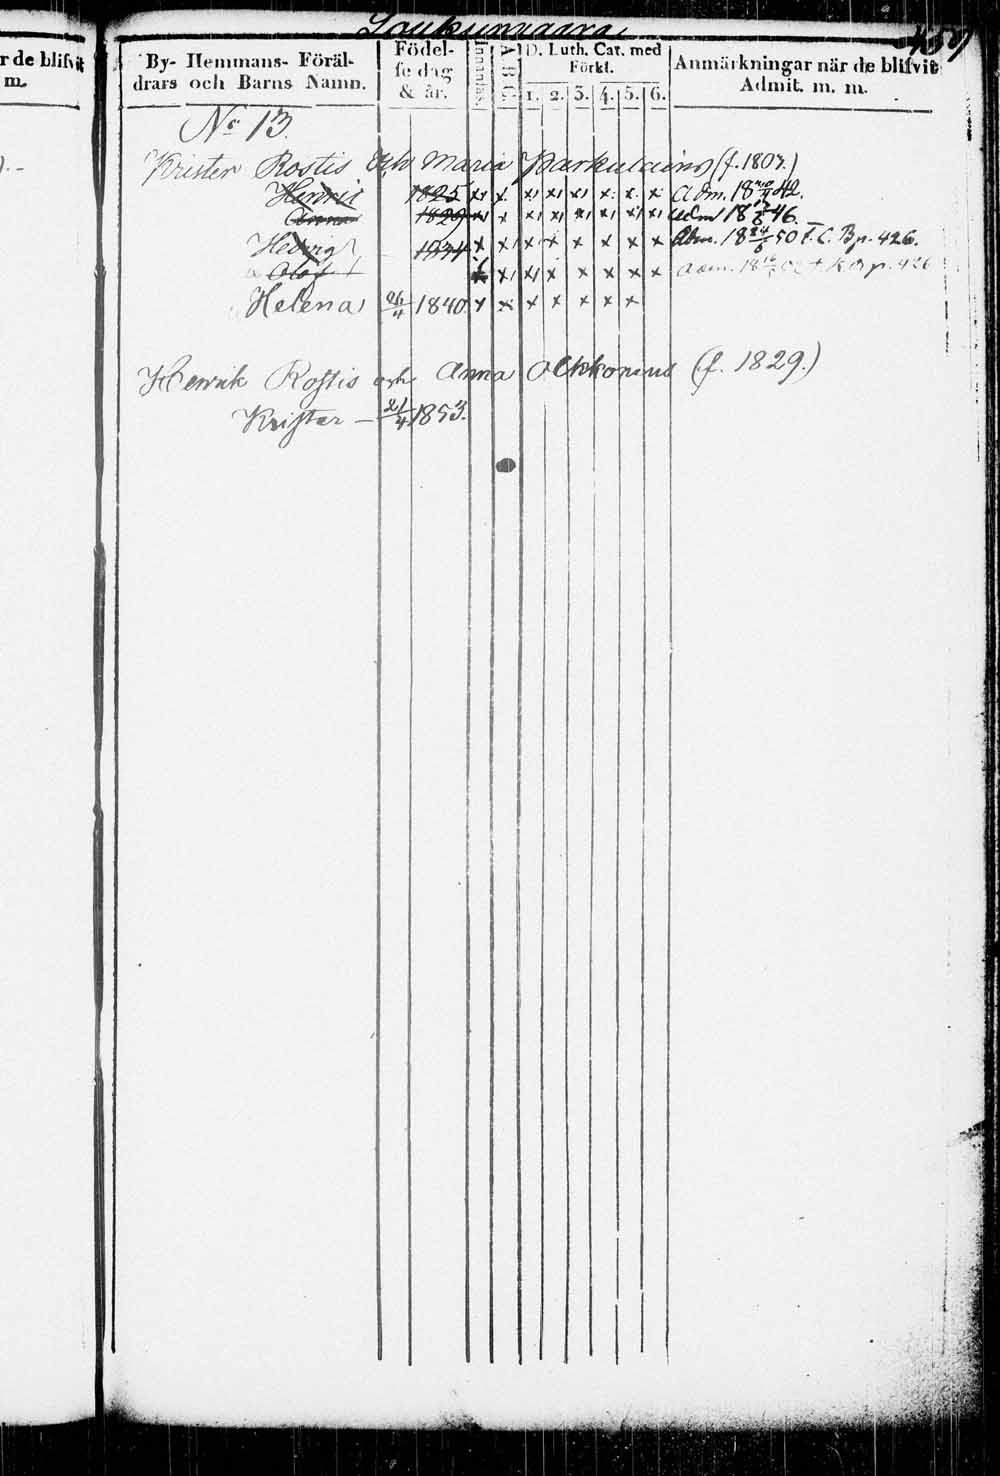 Soukunvaara
459
r de blifvit
m.
By- Hemmans- Föräl-
drars och Barns Namn.
Födel-
se dag
& år.
Innanläs.
A B C.
D. Luth. Cat. med
Förkl.
1. 2. 3. 4. 5. 6.
Anmärkningar när de blifvit
Admit. m. m.
No 13.
Krister Rostis och Maria Parkulainen (f. 1807.)
Henric 1825 x x x x x x x x Adm. 18 42.
Anna 1829 x x x x x x x x adm 18 46.
Hedvig 1834 x x x x x x x x Adm. 18 24/6 50 F. C. B p. 426.
Olof x x x x x x x x adm. 18 p. 426
Helena 26/4 1840. x x x x x x x
Henrik Rostis och Anna Okkonus (f. 1829.)
Kristar — 21/4 1853.